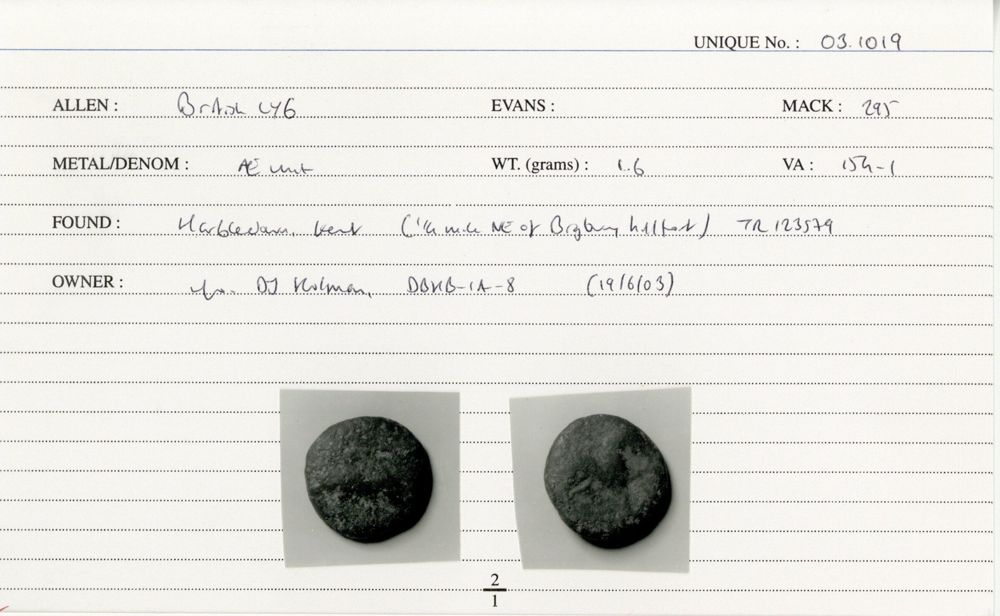 UNIQUE No. : 03.1019
ALLEN : British LY6 EVANS : MACK : 295
METAL/DENOM : Æ unit WT. (grams) : 1.6 VA : 154-1
FOUND : Harbledown, Kent ( mile NE of Bigbury hillfort) TR 123579
OWNER : DJ Holman, DBHB-IA-8 (19/6/03)
2
1